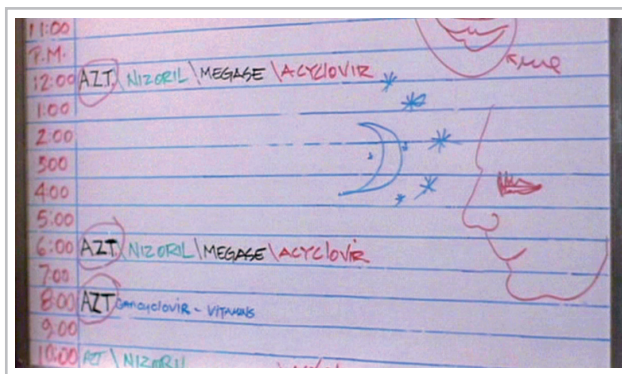 11:00
P.M.
12:00 AZT \ NIZORIL \ MEGASE \ ACYCLOVIR
me
1:00
2:00
300
4:00
5:00
6:00 AZT \ NIZORIL \ MEGASE \ ACYCLOVIR
7:00
8:00 AZT GANCYCLOVIR - VITAMINS
9:00
10:00 AZT \ NIZORIL